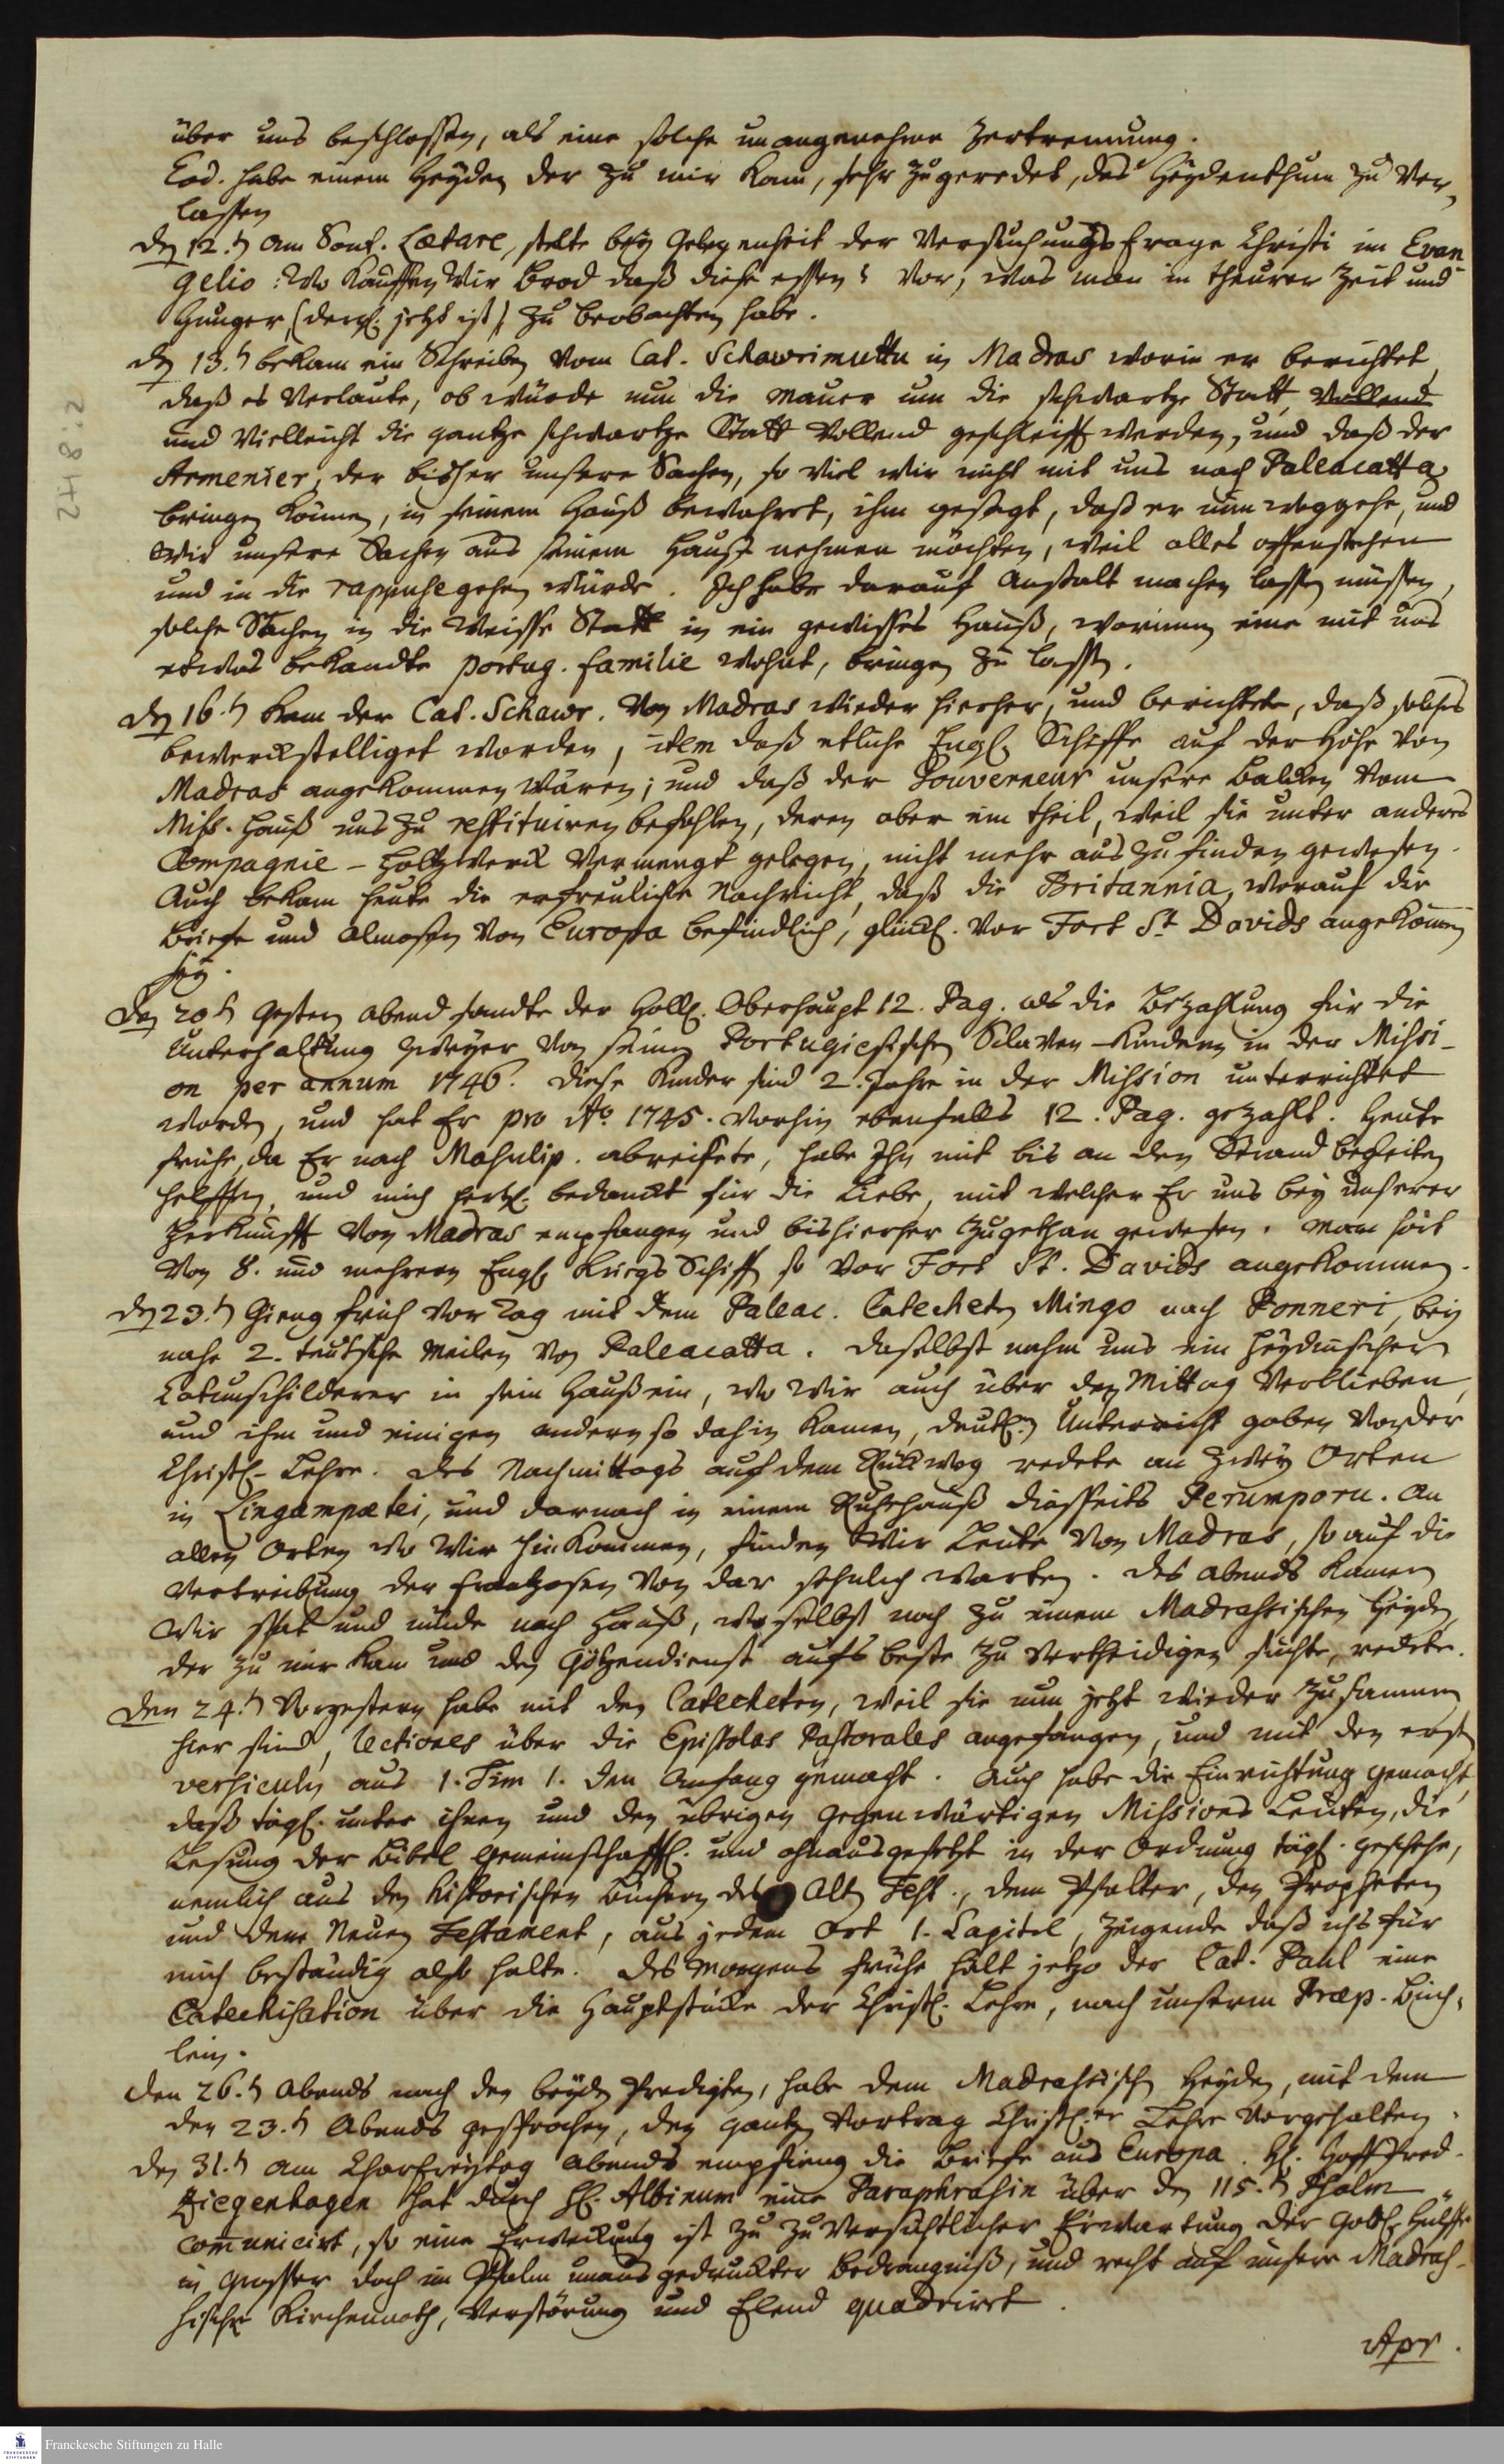 über uns beschlossen, als eine solche unangenehme Zertrennung.
Eod. habe einem Heyden der zu mir kam, sehr zugeredet, das Heydenthum zu ver-
lassen
den 12.t am Sont. Lætare, stelte bey Gelegenheit der Versuchungs Frage Christi im Evan
gelio: Wo kauffen wir Brod daß diese essen? vor, was man in theurer Zeit und
Hunger (dergl. jetzt ist) zu beobachten habe.
den 13.t bekam ein Schreiben vom Cat. Schawrimuttu in Madras worin er berichtet,
daß es verlaute, ob würde nun die Mauer um die schwartze Statt, vollend
und vielleicht die gantze schwartze Statt vollend geschleifft werden, und daß der
Armenier, der bisher unsere Sachen, so viel wir nicht mit uns nach Paleacatta
bringen können, in seinem Hauß bewahret, ihm gesagt, daß er nun weggehe, und
wir unsere Sachen aus seinem Hause nehmen möchten, weil alles offenstehen
und in die rappuse gehen würde. Ich habe darauf Anstalt machen lassen müssen,
solche Sachen in die Weisse Statt in ein gewisses Hauß, worinnen eine mit uns
etwas bekandte portug. familie wohnt, bringen zu lassen.
den 16.t kam der Cat. Schawr. von Madras wieder hierher, und berichtete, daß solches
bewerckstelliget worden, item daß etliche Engl. Schiffe auf der Höhe von
Madras angekommen wären; und daß der Gouverneur unsere Balcken vom
Miss. Hauß uns zu restituiren befohlen, deren aber ein theil, weil sie unter anderes
Compagnie-Holtzwerck vermengt gelegen, nicht mehr auszufinden gewesen.
Auch bekam heute die erfreuliche Nachricht, daß die Britannia, worauf die
Briefe und Almosen von Europa befindlich, glückl. vor Fort St Davids angekommen
sey.
den 20t Gestern abend sandte der Holl. Oberhaupt 12. Pag. als die Bezahlung für die
Unterhaltung zweyer von seinen Portugiesischen Sclaven-Kindern in der Missi-
on per annum 1746. Diese Kinder sind 2. Jahre in der Mission unterrichtet
worden, und hat Er pro Ao. 1745. vorhin ebenfalls 12. Pag. gezahlt. Heute
frühe, da Er nach Masulip. abreisete, habe Ihn mit bis an den Strand begleiten
helffen, und mich hertzl. bedanckt für die Liebe, mit welcher Er uns bey unserer
Herkunfft von Madras empfangen und bishierher zugethan gewesen. Man hört
von 8. und mehrern Engl. Kriegs Schiffen so vor Fort St. Davids angekommen.
den 23.t Gieng früh vor Tag mit dem Paleac. Catecheten Mingo nach Ponneri, bey
nahe 2. teutsche Meilen von Paleacatta. Daselbst nahm uns ein Heydnischer
Catunschilderer in sein Hauß ein, wo wir auch über den Mittag verblieben,
und ihm und einigen andern so dahin kamen, deutl.n Unterricht gaben von der
Christl. Lehre. Des Nachmittags auf dem Rückweg redete an zwey Orten
in Lingampætei, und darnach in einem Ruhehauß disseits Perumporu. An
allen Orten wo wir hinkommen, finden wir Leute von Madras, so auf die
Vertreibung der Frantzosen von dar sehnlich warten. Des abends kamen
wir spät und müde nach Hauß, woselbst noch zu einem Madrassischen Heyden,
der zu mir kam und den Götzendienst aufs beste zu vertheidigen suchte, redete.
den 24.t Vorgestern habe mit den Catecheten, weil sie nun jetzt wieder zusammen
hier sind, lectiones über die Epistolas Pastorales angefangen, und mit den ersten
versiculn aus 1. Tim 1. den Anfang gemacht. Auch habe die Einrichtung gemacht,
daß tägl. unter ihnen und den übrigen gegenwärtigen Missions Leuten, die
Lesung der Bibel gemeinschafftl. und ohnausgesetzt in der Ordnung tägl. geschehe,
nemlich aus den historischen Büchern des Alten Test., dem Psalter, den Propheten
und dem Neuen Testament, aus jedem Ort 1. Capitel, zeigende daß ichs für
mich beständig also halte. Des Morgens frühe hält jetzo der Cat. Paul eine
Catechisation über die Hauptstücke der Christl. Lehre, nach unserm Præp. Büch-
lein.
den 26.t Abends nach den beyden Predigten, habe dem Madrassischen Heyden, mit dem
den 23.t Abends gesprochen, den gantzen Vortrag Christl.er Lehre vorgehalten.
den 31.t am Charfreytag abends empfieng die Briefe aus Europa. H. Hoff Pred.
Ziegenhagen hat durch H. Albinum eine Paraphrasin über den 115.t Psalm
communicirt, so eine Erweckung ist zu zuversichtlicher Erwartung der Göttl. Hülffe
in grosser doch im Psalm unausgedruckter Bedrängniß, und recht auf unsere Madras-
sische Kirchennoth, Verstörung und Elend quadriret.
Apr.
2:8 42
Franckesche Stiftungen zu Halle